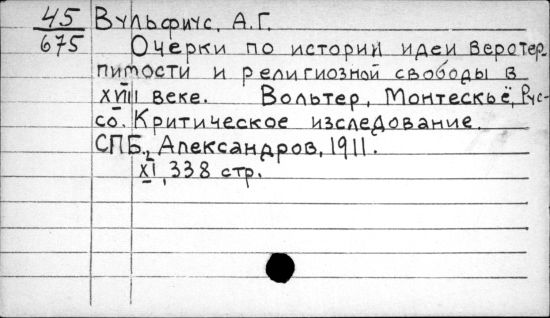 45 Вульфиус, А.Г.
675 Очерки по истории идеи веротер-
пимости и религиозной свободы в
XVIII веке. Вольтер, Монтескьё, Рус-
со. Критическое изследование.
СПБ., Александров, 1911.
XI, 338 стр.